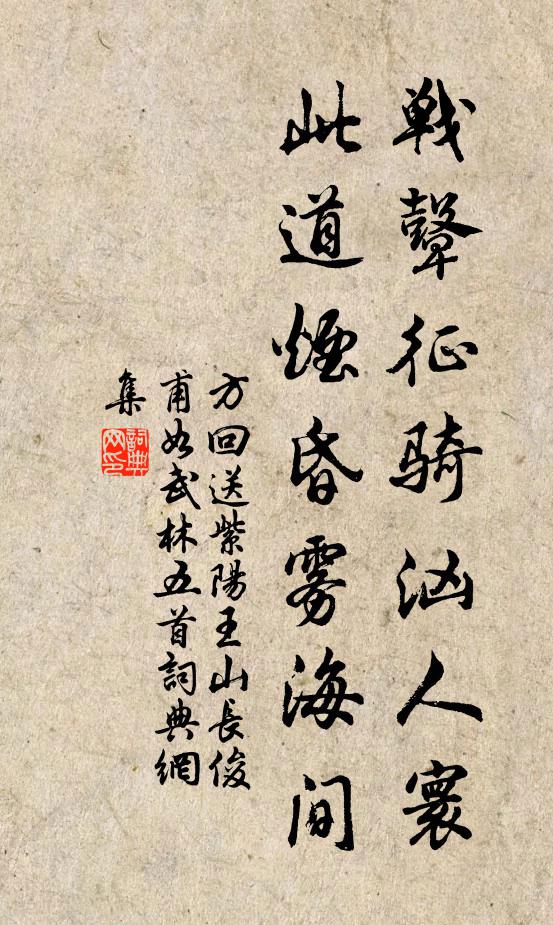 戰鼙征騎汹人寰
此道煙昏雾海間
方回送紫陽王山長俊
甫如武林五首詞典網
集
詞典
网印